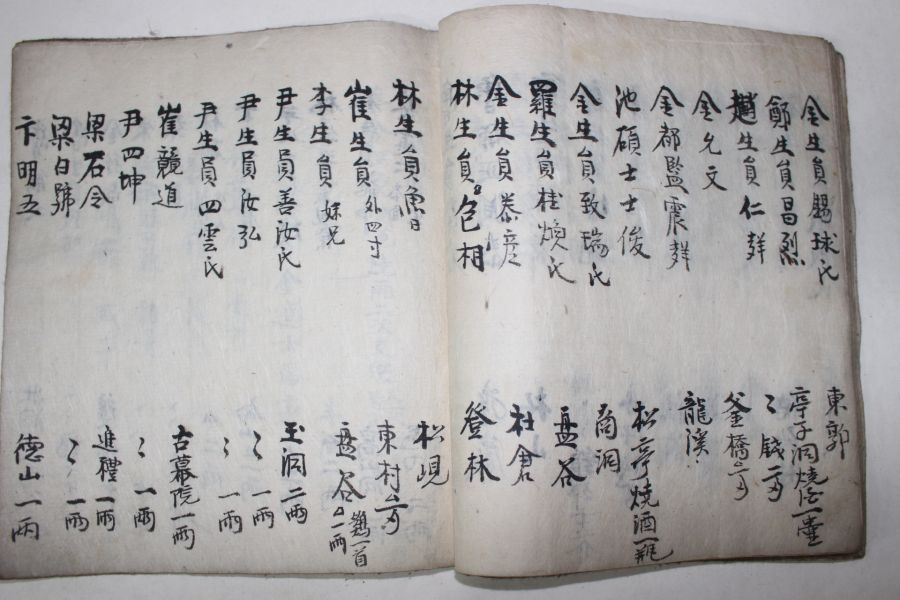 東郭
金生員賜球氏 亭子洞燒酒一壺
鄭生員昌烈 〻 錢
趙生員仁群 釜橋
金允文 龍溪
金都監震群
池碩士士俊 松亭燒酒一瓶
金生員致瑞氏 商洞
羅生員桂煥氏 盘谷
金生員泰彦 杜倉
林生員 色相 登林
林生員魚日 松峴
崔生員外四寸 東村
李生員妹兄 盘谷 鷄一首 一兩
尹生員善汝氏 玉洞二兩
尹生員汝弘 〻 一兩
尹生員四雲氏 〻 一兩
崔競道 古幕院一兩
尹四坤 〻 一兩
梁石令 進禮一兩
梁白號 〻 一兩
卞明五 德山一兩